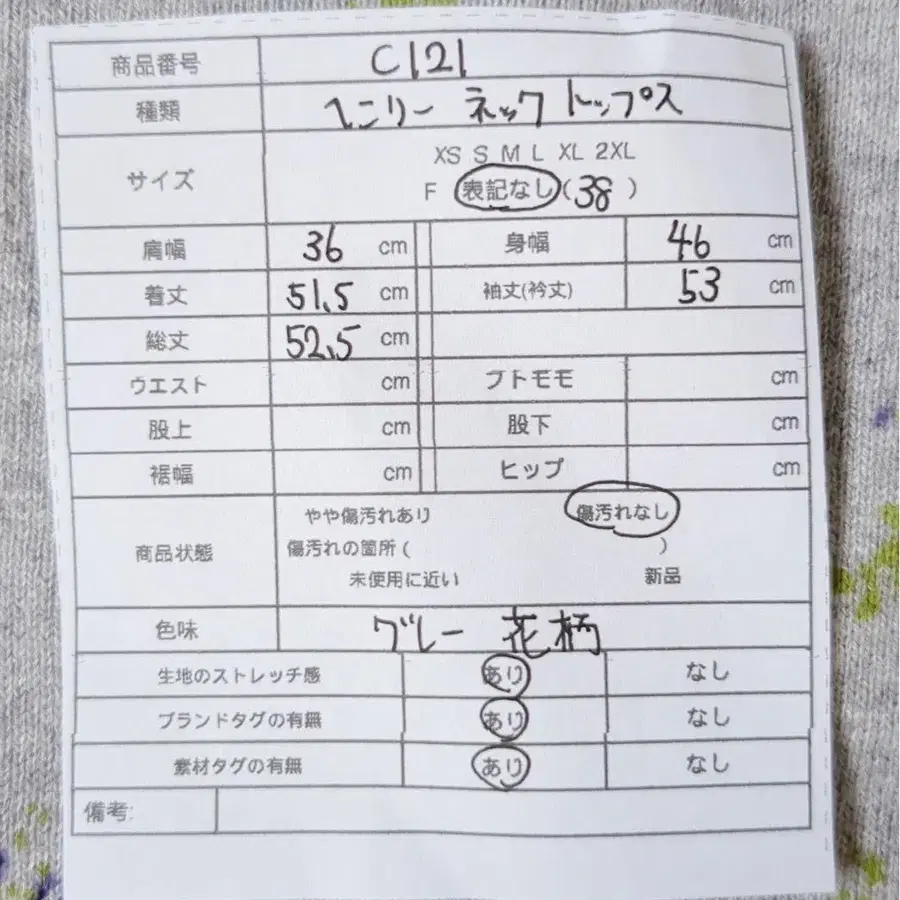 商品番号 C121
種類 ヘンリーネックトップス
サイズ XS S M L XL 2XL
F 表記なし(38)
肩幅 36 cm 身幅 46 cm
着丈 51.5 cm 袖丈(衿丈) 53 cm
総丈 52.5 cm
ウエスト cm フトモモ cm
股上 cm 股下 cm
裾幅 cm ヒップ cm
やや傷汚れあり 傷汚れなし
商品状態 傷汚れの箇所( )
未使用に近い 新品
色味 グレー 花柄
生地のストレッチ感 あり なし
ブランドタグの有無 あり なし
素材タグの有無 あり なし
備考: